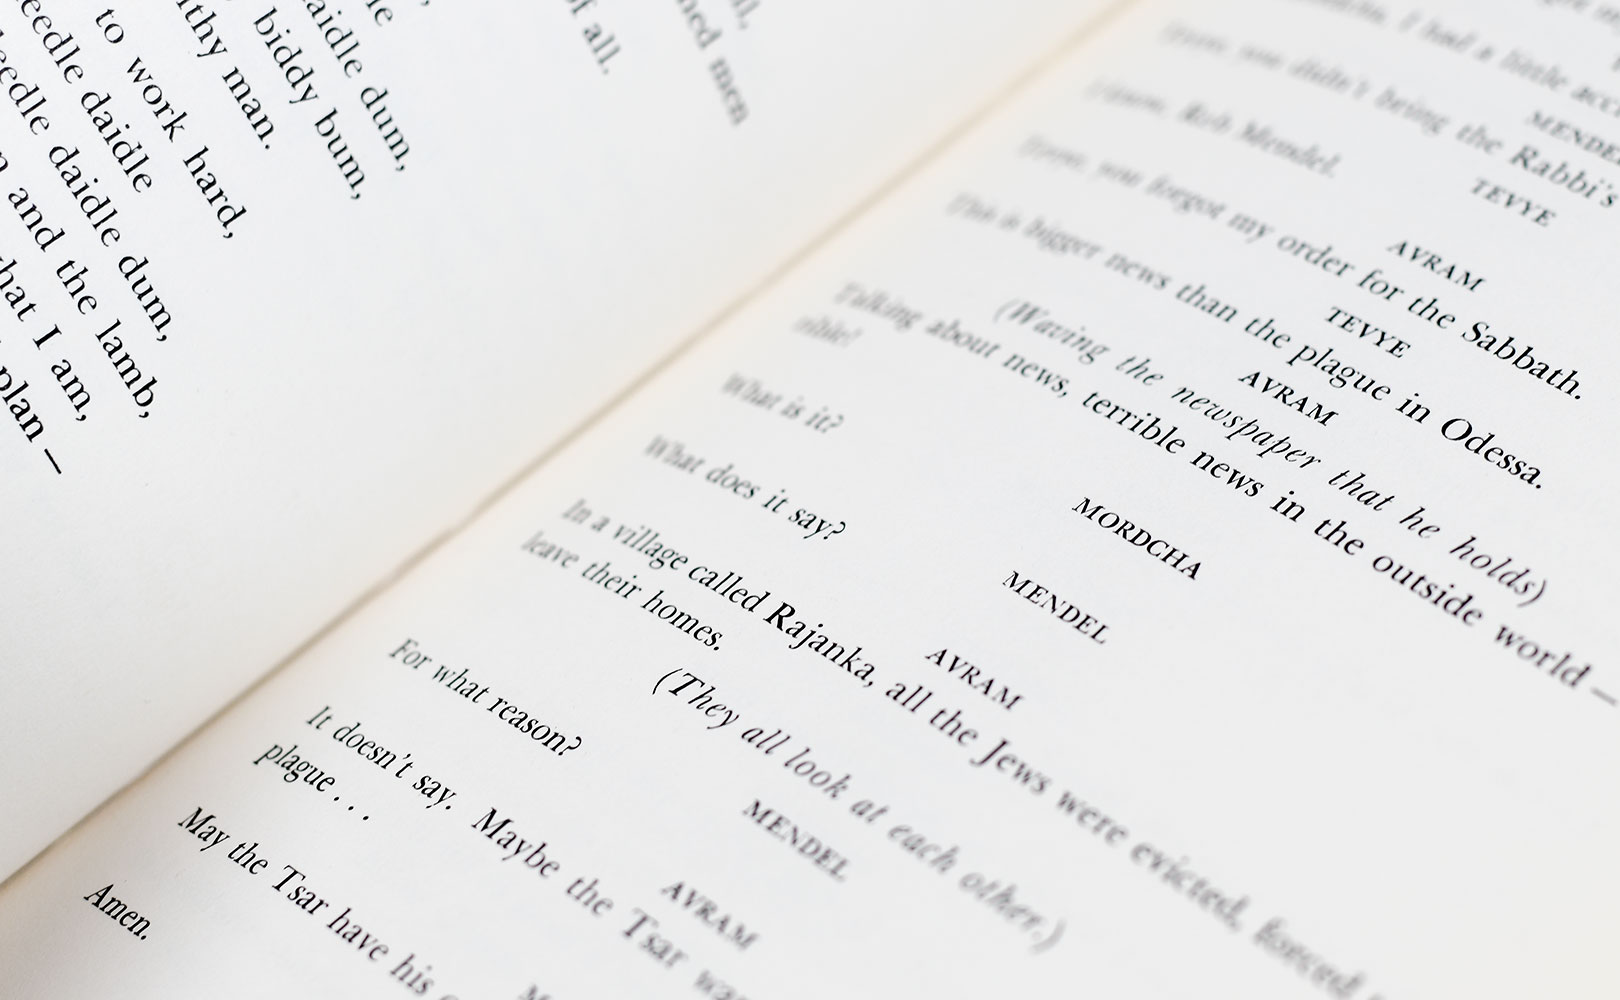 of all.
men
daidle dum,
biddy bum,
man.
to work hard,
daidle
daidle dum,
and the lamb,
what I am,
plan —
I had a little
MENDEL
you didn't bring the Rabbi's
TEVYE
I know, Reb Mendel.
AVRAM
you forgot my order for the Sabbath.
TEVYE
This is bigger news than the plague in Odessa.
AVRAM
(Waving the newspaper that he holds)
Talking about news, terrible news in the outside world —
MORDCHA
What is it?
MENDEL
What does it say?
AVRAM
In a village called Rajanka, all the Jews were evicted, forced
leave their homes.
(They all look at each other.)
MENDEL
For what reason?
AVRAM
It doesn't say. Maybe the Tsar
plague . . .
May the Tsar have his
Amen.